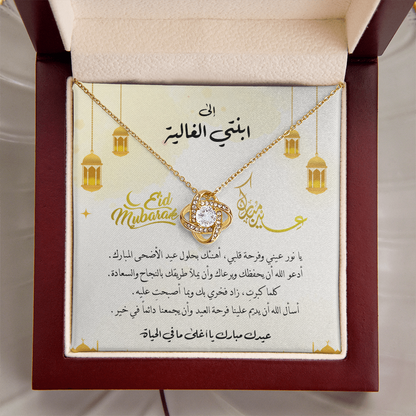 إلى
ابنتي الغالية
Eid
Mubarak
عيد مبارك
يا نور عيني وفرحة قلبي، أهنّك بحلول عيد الأضحى المبارك.
أدعو الله أن يحفظك ويرعاك وأن يملأ طريقك بالنجاح والسعادة.
كلما كبرتِ، زاد فخري بك وبما أصبحتِ عليه.
أسأل الله أن يديم علينا فرحة العيد وأن يجمعنا دائماً في خير.
عيدك مبارك يا اغلى ما في الحياة